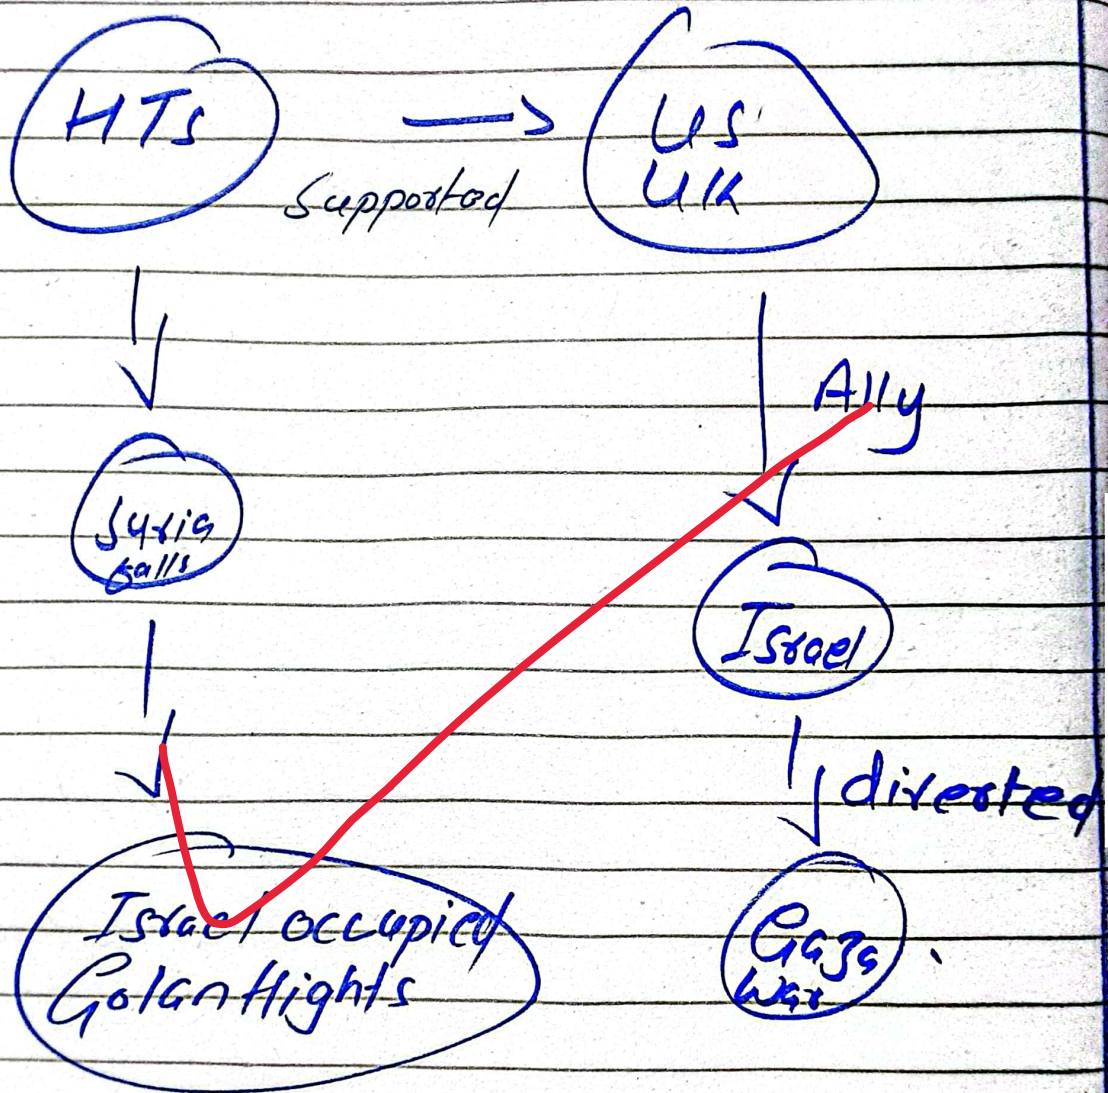 HTs
Supported
US
UK
Ally
Syria
falls
Israel
diverted
Israel occupied
Golan Hights
Gaza
War